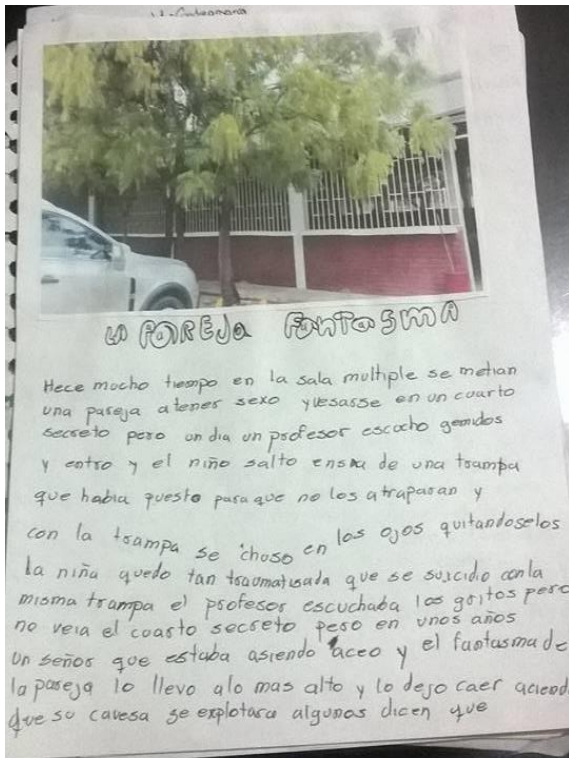 LA PAREJA FANTASMA
Hece mucho tiempo en la sala multiple se metian
una pareja a tener sexo y vesarse en un cuarto
secreto pero un dia un profesor escucho gemidos
y entro y el niño salto ensima de una trampa
que habia puesto para que no los atraparan y
con la trampa se chuso en los ojos quitandoselos
la niña quedo tan traumatisada que se suicido con la
misma trampa el profesor escuchaba los gritos pero
no veia el cuarto secreto pero en unos años
un señor que estaba asiendo aceo y el fantasma de
la pareja lo llevo alo mas alto y lo dejo caer aciend
que su cavesa se explotara algunos dicen que